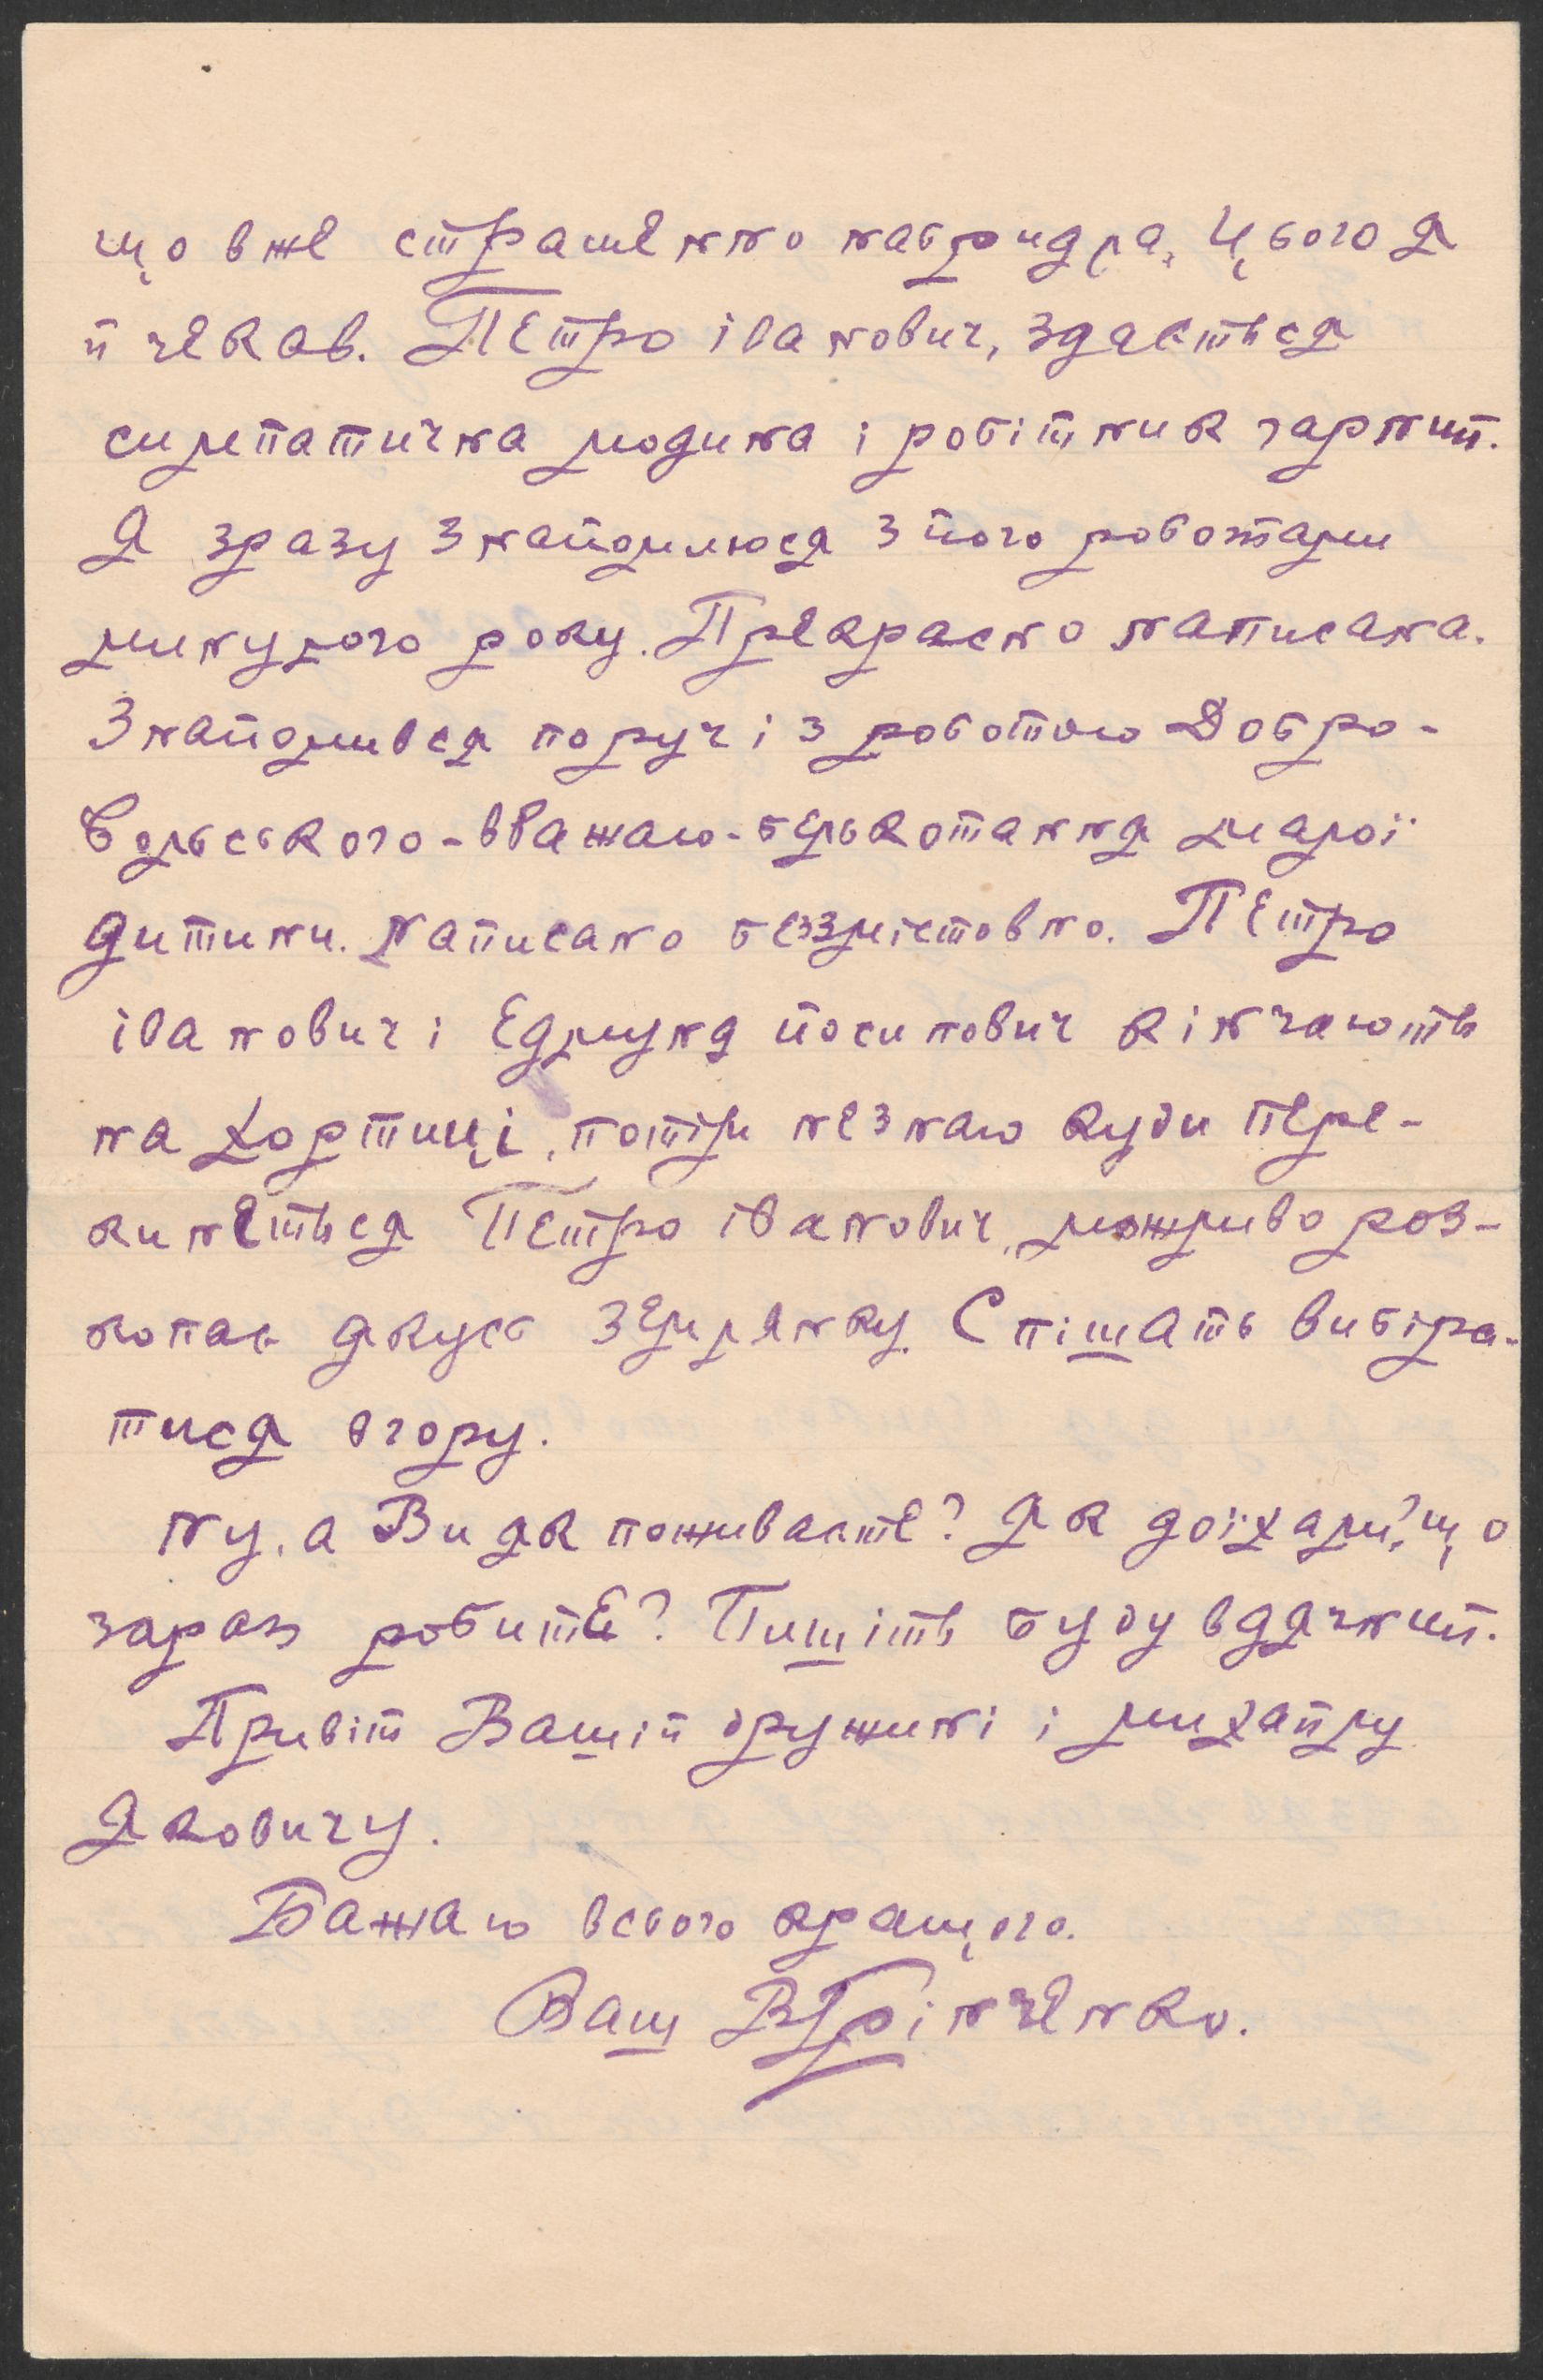 що вже страшенно набридла, Цього я
й чекав. Петро Іванович, здається
симпатична людина і робітник гарний.
Я зразу знайомлюся з його роботами
минулого року. Прекрасно написана.
Знайомився поруч і з роботою Добро-
вольського - вважаю - белькотання малої
дитини. Написано беззмістовно. Петро
Іванович і Едмунд Йосипович кінчають
на Хортиці, потім незнаю куди пере-
кинеться Петро Іванович, можливо роз-
копає якусь землянку. Спішать вибіра-
тися вгору.
Ну, а Ви як поживаєте? Як доїхали?, що
зараз робите? Пишіть буду вдячний.
Привіт Вашій дружині і Михайлу
Яковичу.
Бажаю всього кращого.
Ваш ВГрінченко.